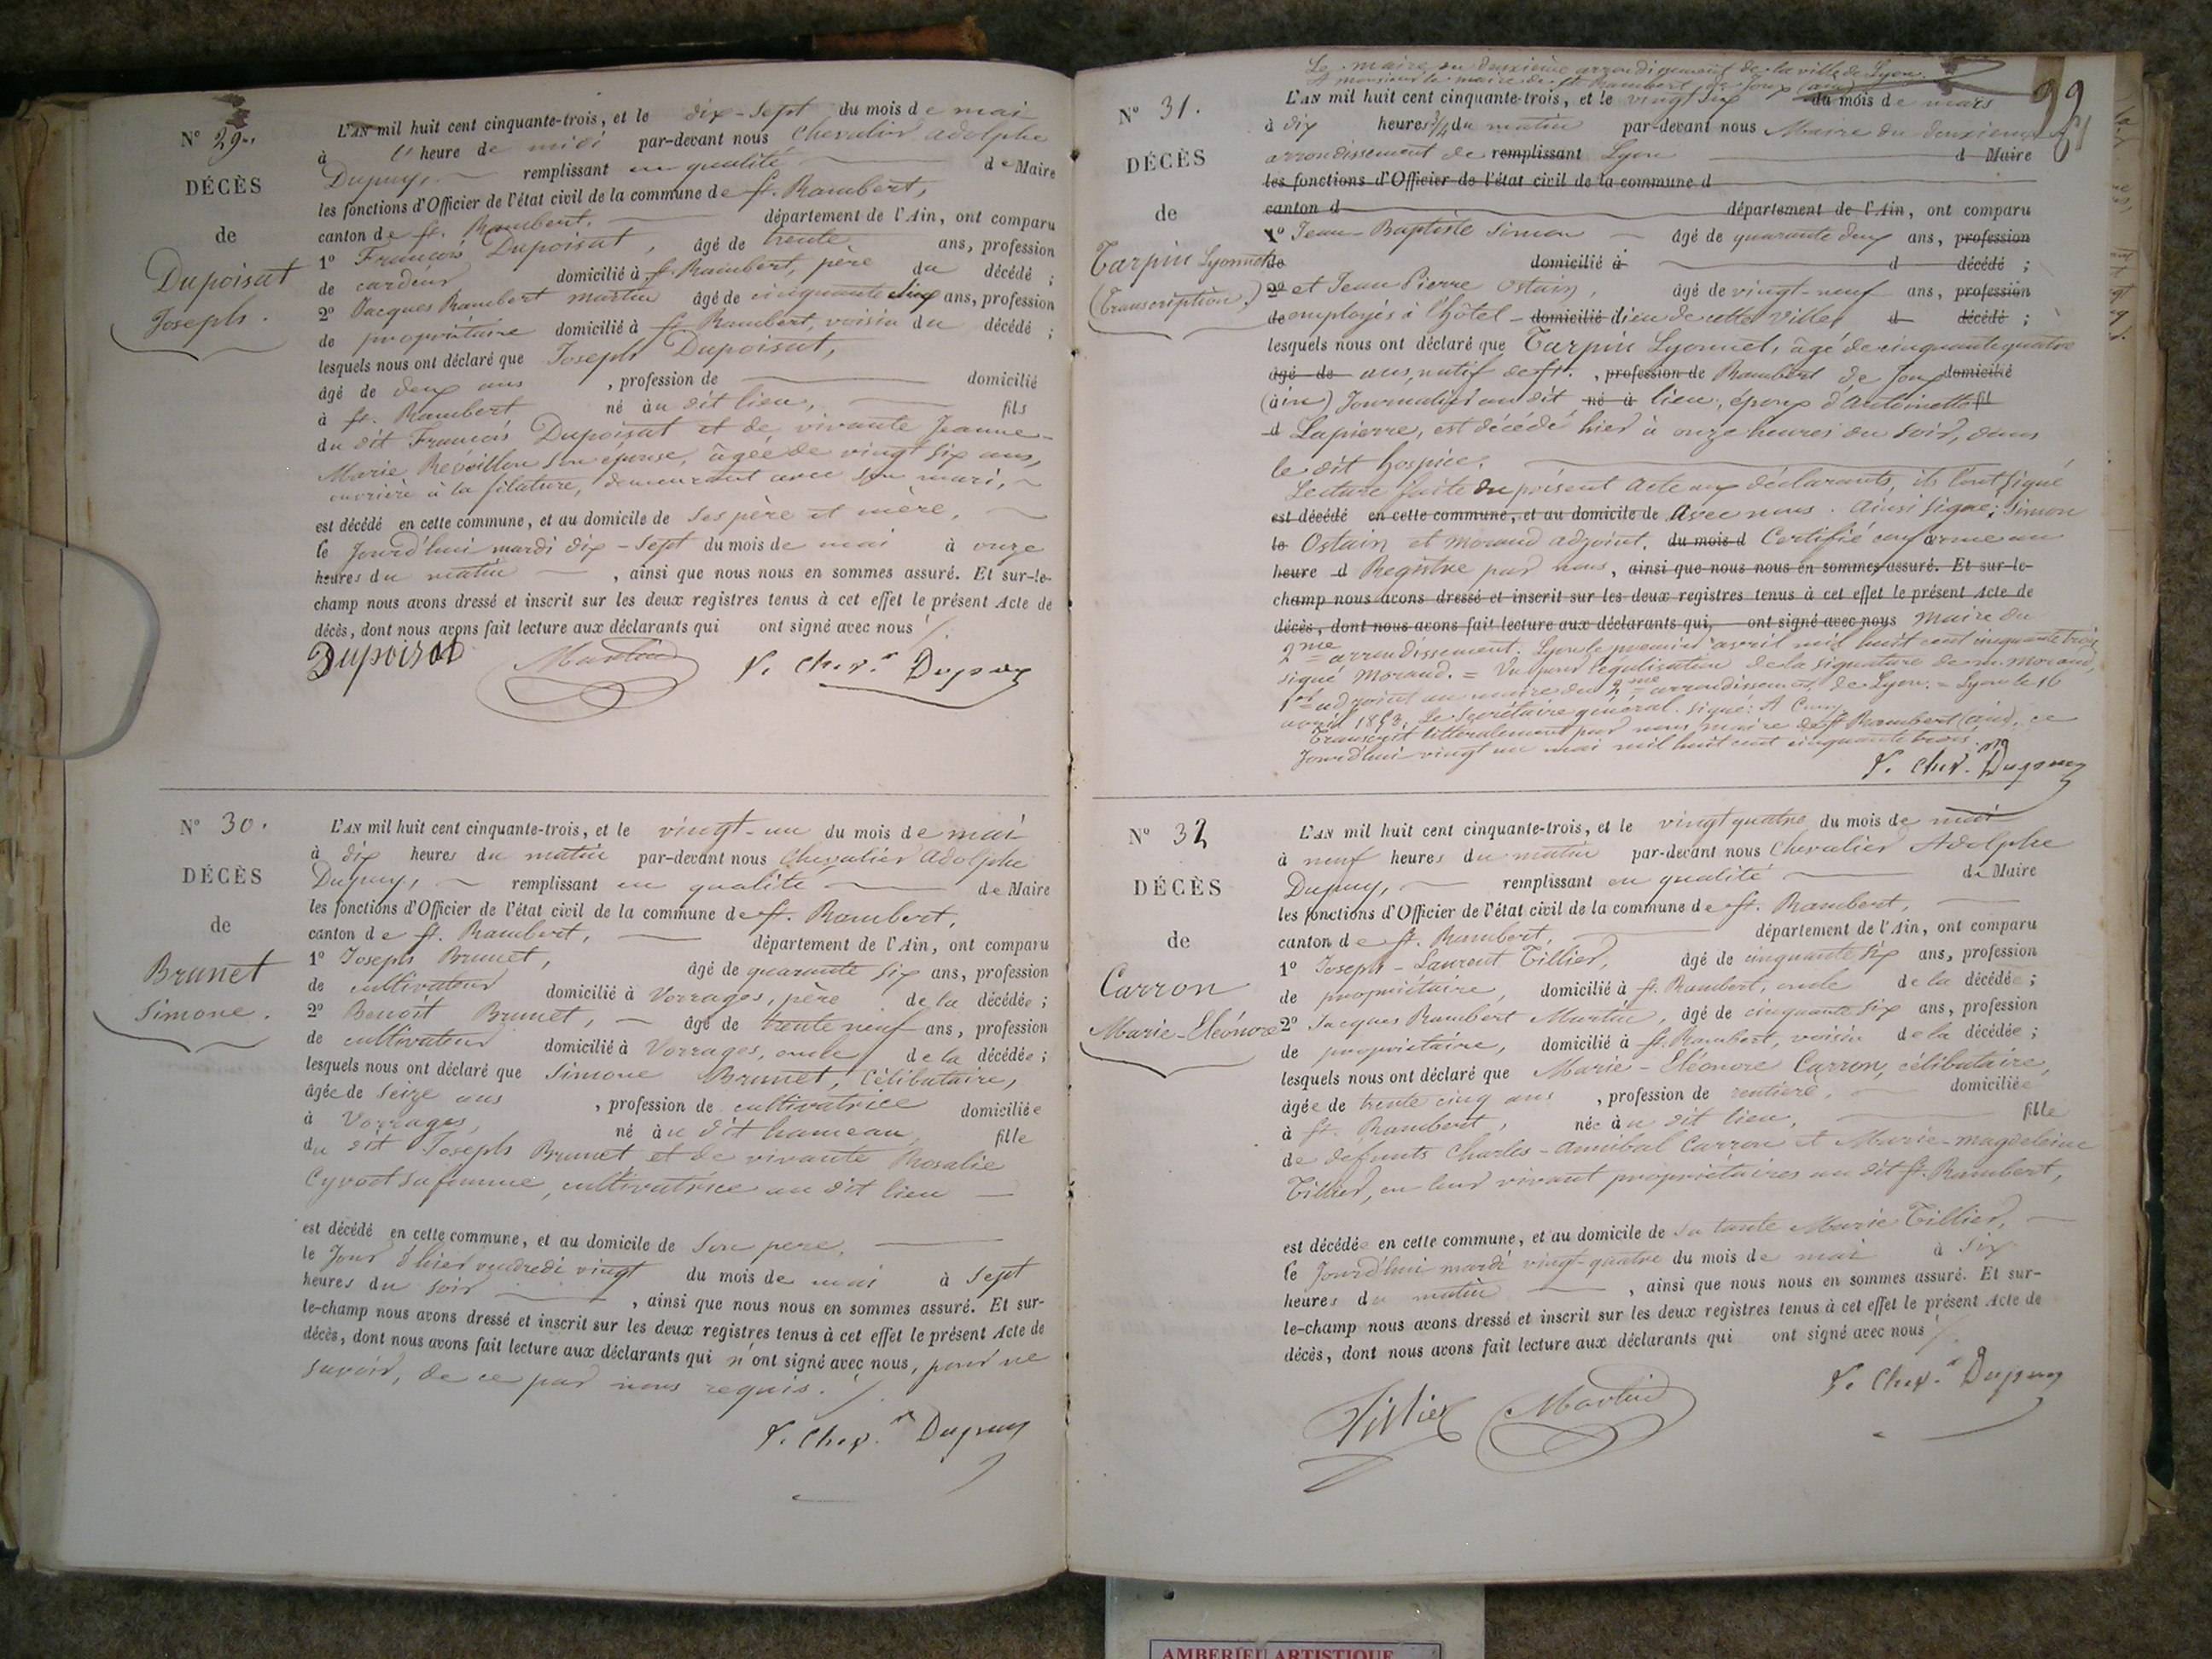 N° 29.
DÉCÈS
de
Dupoisat
Joseph.
L'AN mil huit cent cinquante-trois, et le dix-sept du mois de mai
à l'heure de midi par-devant nous Chevalier Adolphe
Dupuy, remplissant en qualité de Maire
les fonctions d'Officier de l'état civil de la commune de St. Rambert,
canton de St. Rambert, département de l'Ain, ont comparu
1° François Dupoisat, âgé de trente ans, profession
de cardeur domicilié à St. Rambert, père du décédé ;
2° Jacques Rambert Martin âgé de cinquante six ans, profession
de propriétaire domicilié à St. Rambert, voisin du décédé ;
lesquels nous ont déclaré que Joseph Dupoisat,
âgé de deux ans , profession de domicilié
à St. Rambert né au dit lieu, fils
du dit François Dupoisat et de vivante Jeanne-
Marie Révoillon son épouse, âgée de vingt six ans,
ouvrière à la filature, demeurant avec son mari,
est décédé en cette commune, et au domicile de ses père et mère,
le Jourd'hui mardi dix-sept du mois de mai à onze
heures du matin , ainsi que nous nous en sommes assuré. Et sur-le-
champ nous avons dressé et inscrit sur les deux registres tenus à cet effet le présent Acte de
décès, dont nous avons fait lecture aux déclarants qui ont signé avec nous /.
Dupoisat Martin Chevr. Dupuy
N° 30.
DÉCÈS
de
Brunet
Simone.
L'AN mil huit cent cinquante-trois, et le vingt-un du mois de mai
à dix heures du matin par-devant nous Chevalier Adolphe
Dupuy, remplissant en qualité de Maire
les fonctions d'Officier de l'état civil de la commune de St. Rambert,
canton de St. Rambert, département de l'Ain, ont comparu
1° Joseph Brunet, âgé de quarante six ans, profession
de cultivateur domicilié à Vorrages, père de la décédée ;
2° Benoît Brunet, âgé de trente neuf ans, profession
de cultivateur domicilié à Vorrages, oncle de la décédée ;
lesquels nous ont déclaré que Simone Brunet, célibataire,
âgée de seize ans , profession de cultivatrice domiciliée
à Vorrages, né au dit hameau, fille
du dit Joseph Brunet et de vivante Rosalie
Cyvoct sa femme, cultivatrice au dit lieu
est décédé en cette commune, et au domicile de son père,
le Jour d'hier vendredi vingt du mois de mai à sept
heures du soir , ainsi que nous nous en sommes assuré. Et sur-
le-champ nous avons dressé et inscrit sur les deux registres tenus à cet effet le présent Acte de
décès, dont nous avons fait lecture aux déclarants qui n'ont signé avec nous, pour ne
savoir, de ce par nous requis. /.
Chevr. Dupuy
N° 31.
DÉCÈS
de
Tarpin Lyonnet
(Transcription.)
Le maire du deuxième arrondissement de la ville de Lyon
A monsieur le maire de St Rambert de Joux (ain)
L'AN mil huit cent cinquante-trois, et le vingt six du mois de mars
à dix heures 3/4 du matin par-devant nous Maire du deuxième
arrondissement de remplissant Lyon d Maire
les fonctions d'Officier de l'état civil de la commune d
canton d département de l'Ain, ont comparu
1° Jean-Baptiste Simon âgé de quarante deux ans, profession
de domicilié à d décédé ;
2° et Jean Pierre Ostain, âgé de vingt-neuf ans, profession
de employés à l'hôtel- domicilié dieu de cette ville d décédé ;
lesquels nous ont déclaré que Tarpin Lyonnet, âgé de cinquante quatre
âgé de ans, natif de St. , profession de Rambert de Joux domicilié
(ain) Journalier au dit né à lieu, époux d'Antoinette fil
d Lapierre, est décédé hier à onze heures du soir, dans
le dit hospice.
Lecture faite du présent acte aux déclarants, ils l'ont signé
est décédé en cette commune, et au domicile de Avec nous. Ainsi signé: Simon
le Ostain et Morand adjoint. du mois d Certifié conforme au
heure d Registre par nous, ainsi que nous nous en sommes assuré. Et sur-le-
champ nous avons dressé et inscrit sur les deux registres tenus à cet effet le présent Acte de
décès, dont nous avons fait lecture aux déclarants qui, ont signé avec nous Maire du
2me arrondissement. Lyon le premier avril mil huit cent cinquante trois
signé Morand. = Vu pour légalisation de la signature de M. Morand,
1er adjoint au maire du 2me arrondissement de Lyon. = Lyon le 16
avril 1853. Le Secrétaire général. signé: A
Transcrit littéralement par nous maire de St Rambert (ain), ce
Jourd'hui vingt un mai mil huit cent cinquante trois.
Chevr. Dupuy
N° 32
DÉCÈS
de
Carron
Marie-Eléonore
L'AN mil huit cent cinquante-trois, et le vingt quatre du mois de mai
à neuf heures du matin par-devant nous Chevalier Adolphe
Dupuy, remplissant en qualité de Maire
les fonctions d'Officier de l'état civil de la commune de St. Rambert,
canton de St. Rambert, département de l'Ain, ont comparu
1° Joseph-Laurent Tillier, âgé de cinquante six ans, profession
de propriétaire, domicilié à St. Rambert, oncle de la décédée ;
2° Jacques Rambert Martin, âgé de cinquante six ans, profession
de propriétaire, domicilié à St. Rambert, voisin de la décédée ;
lesquels nous ont déclaré que Marie-Eléonore Carron, célibataire,
âgée de trente cinq ans , profession de rentière, domiciliée
à St. Rambert, née au dit lieu, fille
de défunts Charles-Annibal Carron et Marie-Magdeleine
Tillier, en leur vivant propriétaires au dit St. Rambert,
est décédée en cette commune, et au domicile de sa tante Marie Tillier,
le Jourd'hui mardi vingt-quatre du mois de mai à six
heures du matin , ainsi que nous nous en sommes assuré. Et sur-
le-champ nous avons dressé et inscrit sur les deux registres tenus à cet effet le présent Acte de
décès, dont nous avons fait lecture aux déclarants qui ont signé avec nous /.
Tillier Martin Chevr. Dupuy
AMBERIEU ARTISTIQUE